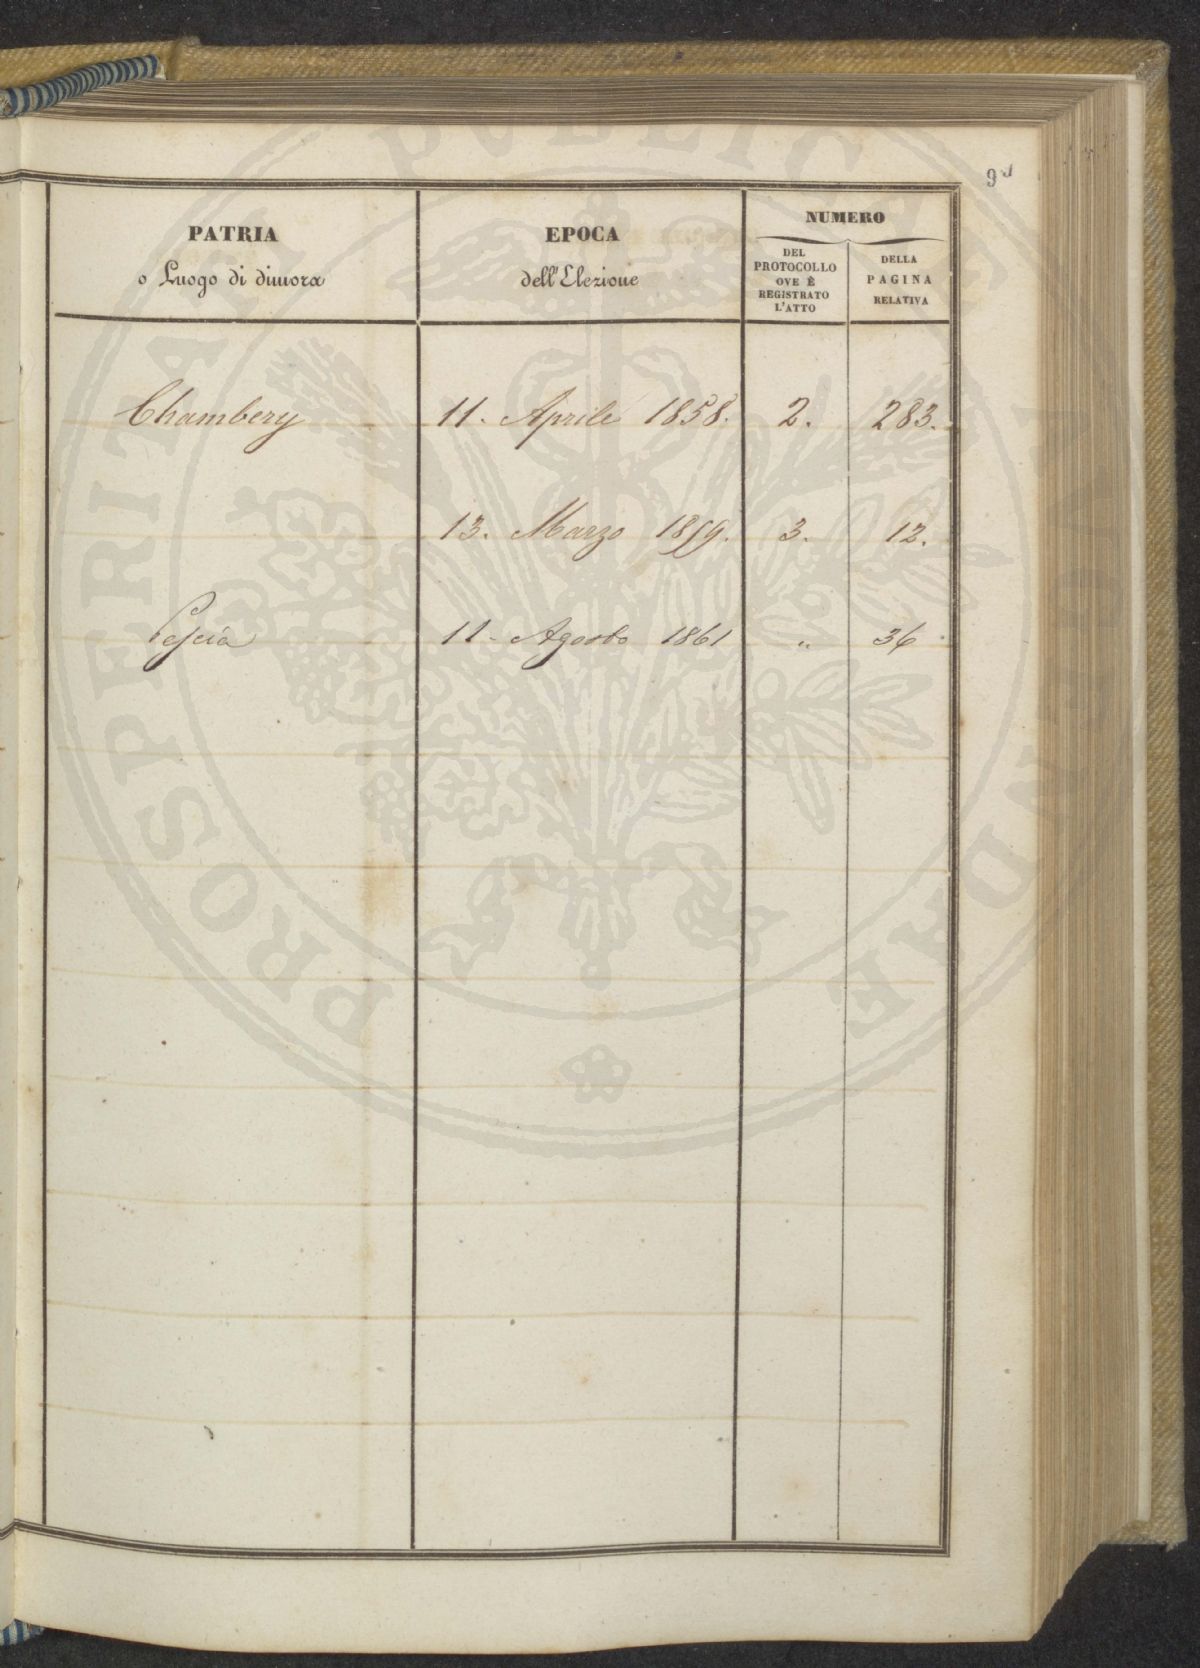 PATRIA
o Luogo di dimora
EPOCA
dell'Elezione
NUMERO
DEL
PROTOCOLLO
OVE È
REGISTRATO
L'ATTO
DELLA
PAGINA
RELATIVA
Chambery 11. Aprile 1858. 2. 283.
13. Marzo 1859. 3. 12.
Pescia 11 - Agosto 1861 " 36
PROSPERITATI PUBLICAE AUGENDAE